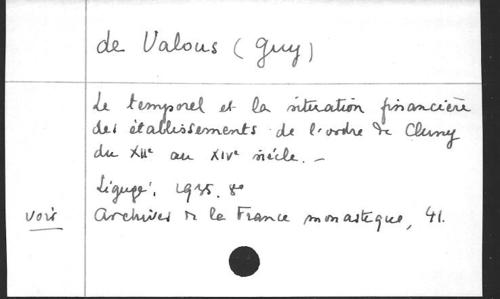 de Valous (Guy)
Le temporel et la situation financière
des établissements de l'ordre de Cluny
du XIIe au XIVe siècle. -
Ligugé, 1935. 8°
voir Archives de la France monastique, 41.